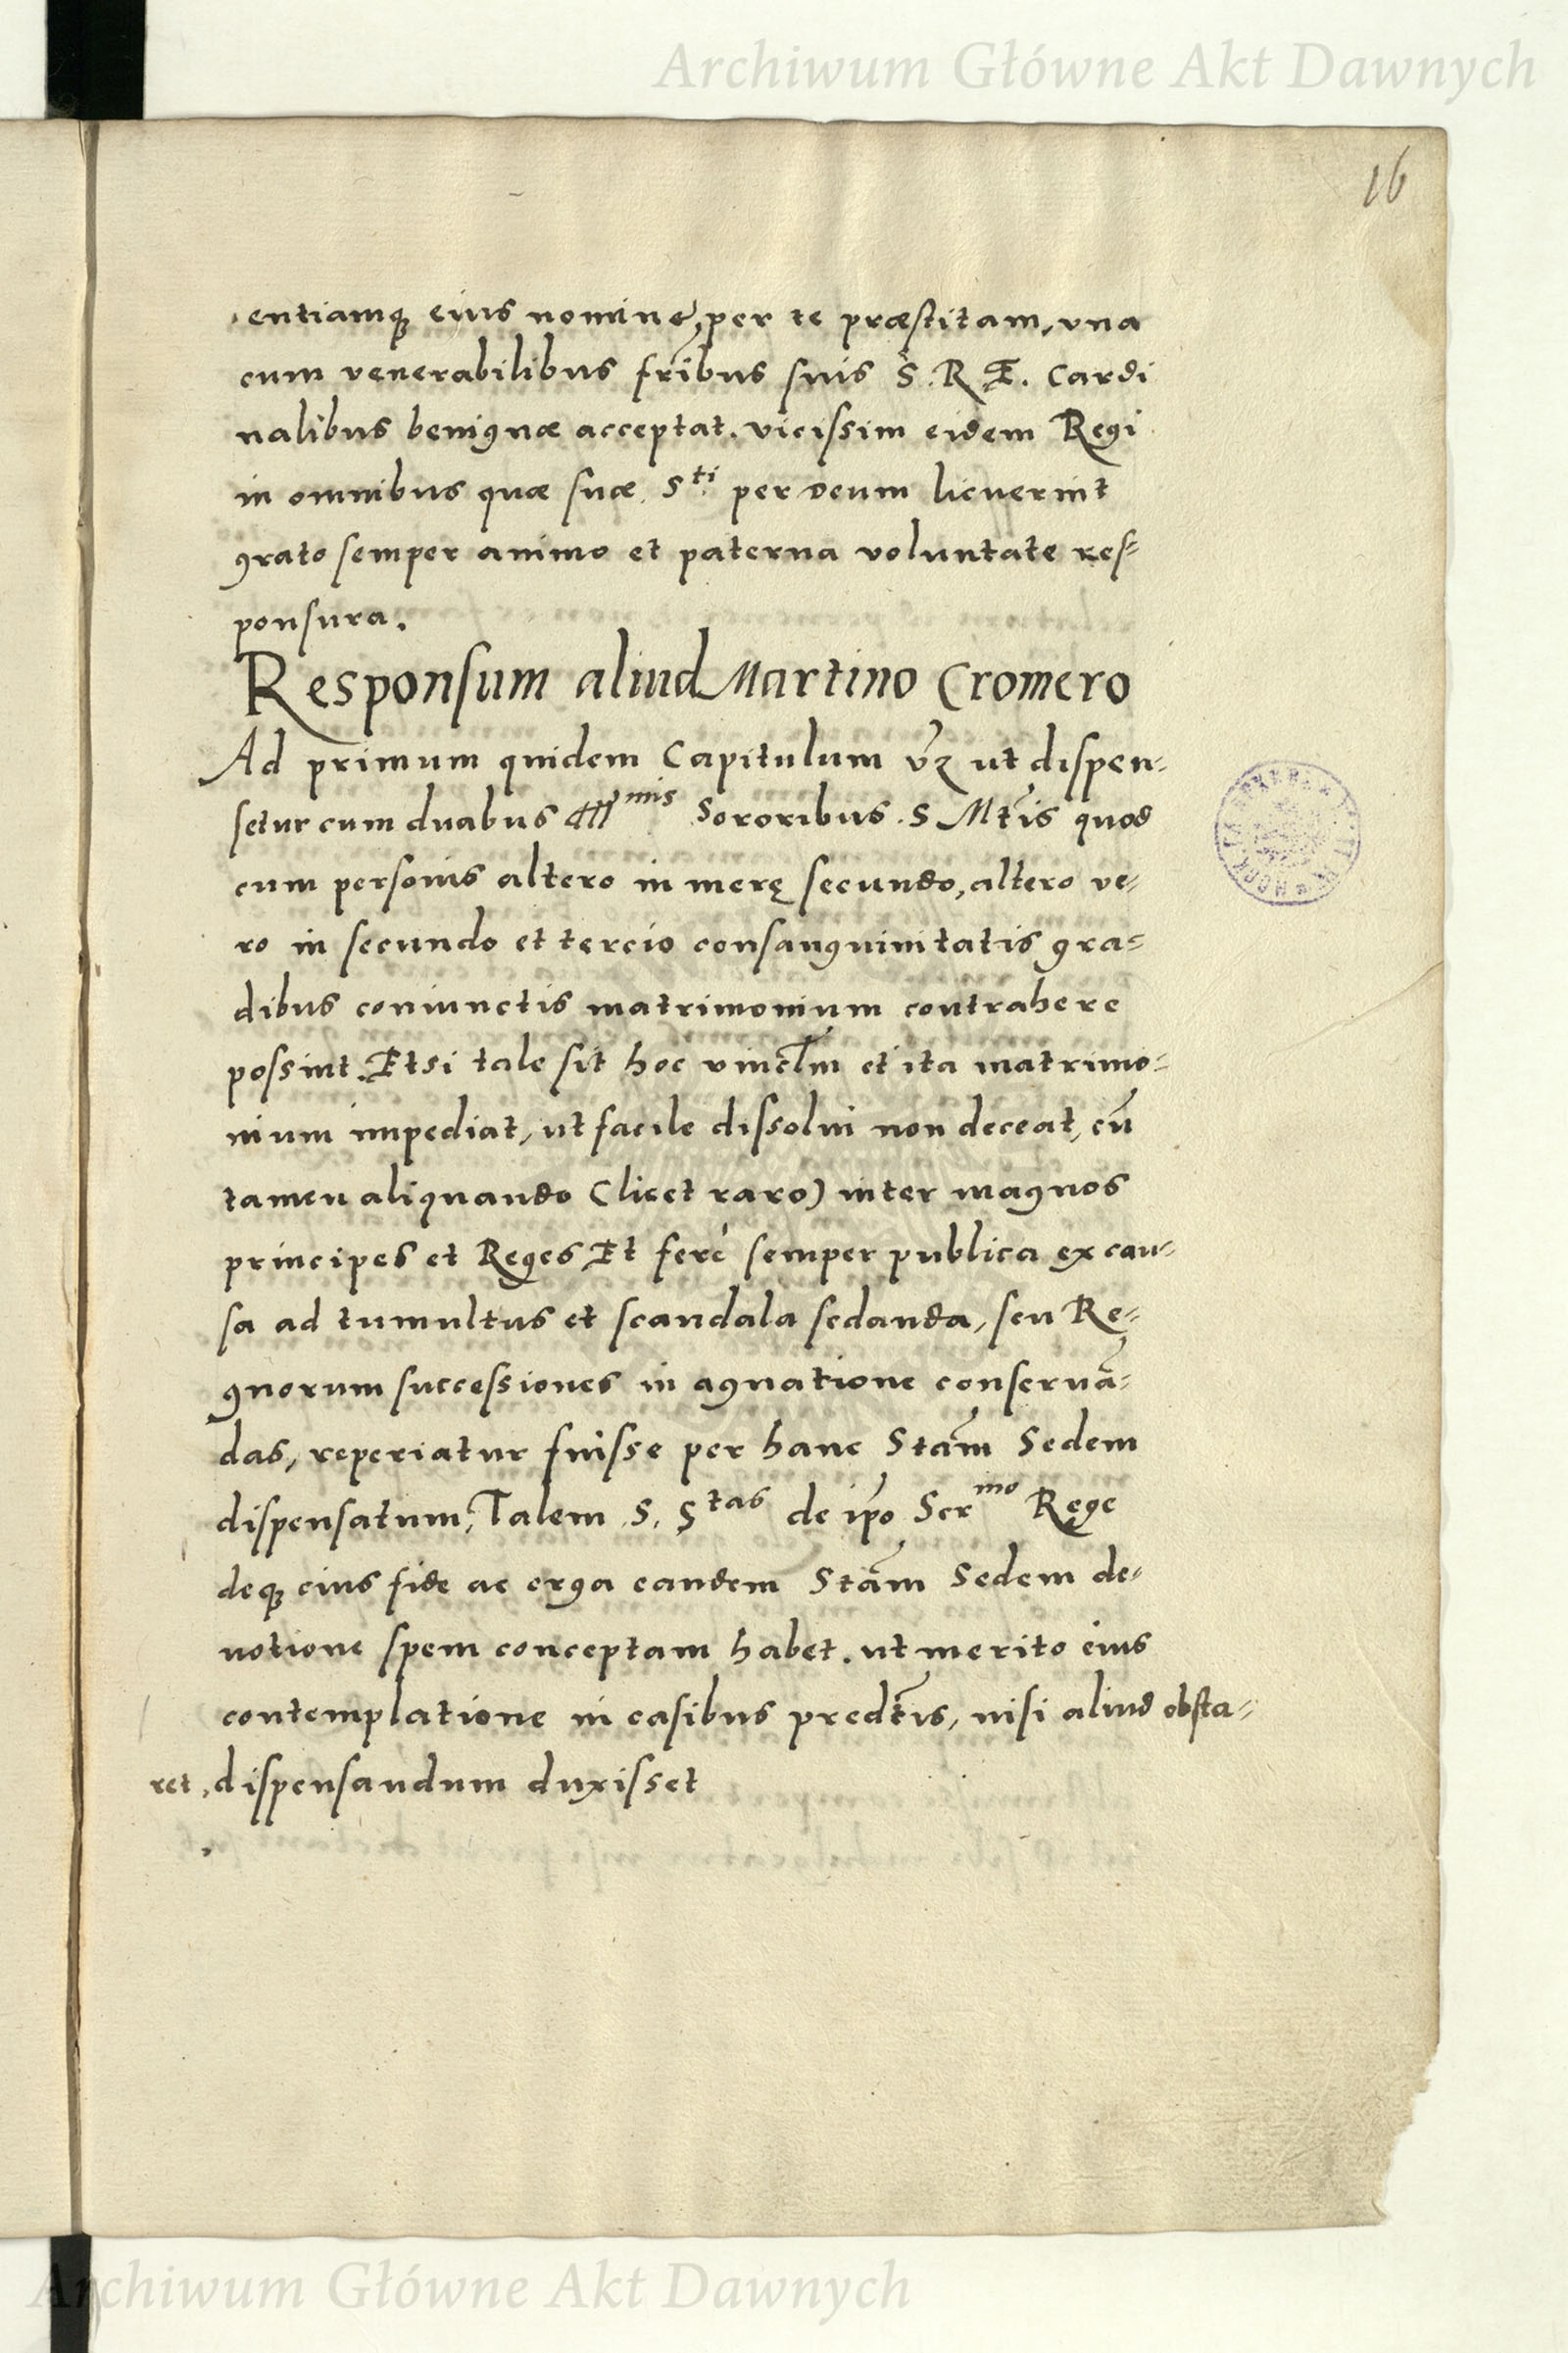 Archiwum Główne Akt Dawnych
16
entiamq; eius nomine, per te præstitam, vna
cum venerabilibus fr̃ibus suis S. R. E. Cardi
nalibus benignæ acceptat. vicissim eidem Regi
in omnibus quæ suæ S.ti per Deum licuerint
grato semper animo et paterna voluntate res-
ponsura.
Responsum aliud Martino Cromero
Ad primum quidem Capitulum vz̃ ut dispen-
setur cum duabus Ill.mis Sororibus. S Mt̃is quod
cum personis altero in merę secundo, altero ve-
ro in secundo et tercio consanguinitatis gra-
dibus coniunctis matrimonium contrahere
possint. Etsi tale sit hoc vincl̃m et ita matrimo-
nium impediat, ut facile dissolui non deceat, cũ
tamen aliquando (licet raro) inter magnos
principes et Reges Et ferè semper publica ex cau-
sa ad tumultus et scandala sedanda, seu Re-
gnorum successiones in agnatione conseruã-
das, reperiatur fuisse per hanc Stãm Sedem
dispensatum, Talem S. Stas de ip̃o Sermo Rege
deq; eius fide ac erga eandem Stãm Sedem de-
uotione spem conceptam habet. ut merito eius
contemplatione in casibus predt̃is, nisi aliud obsta-
ret, dispensandum duxisset
Archiwum Główne Akt Dawnych